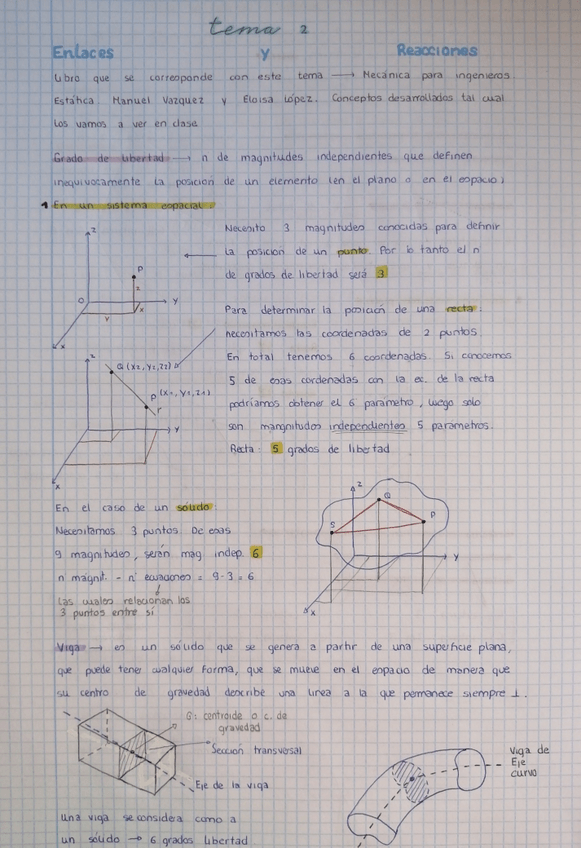 tema 2
Enlaces y Reacciones
Libro que se corresponde con este tema → Mecánica para ingenieros
Estática. Manuel Vazquez y Eloisa López. Conceptos desarrollados tal cual
los vamos a ver en clase
Grado de libertad → n de magnitudes independientes que definen
inequivocamente la posición de un elemento (en el plano o en el espacio)
1 En un sistema espacial:
Necesito 3 magnitudes conocidas para definir
la posición de un punto. Por lo tanto el n
de grados de libertad será 3
z
P
z
O
y
x
Y
x
Para determinar la posición de una recta:
necesitamos las coordenadas de 2 puntos
En total tenemos 6 coordenadas. Si conocemos
5 de esas cordenadas con la ec. de la recta
podríamos obtener el 6 parámetro, luego solo
son mangnitudes independientes 5 parametros.
Recta: 5 grados de libertad
z
Q (x2, y2, z2)
P (x1, y1, z1)
r
y
x
En el caso de un sólido:
Necesitamos 3 puntos. De esas
9 magnitudes, serán mag indep. 6
n magnit. - nº ecuaciones = 9-3 = 6
las cuales relacionan los
3 puntos entre sí
z
Q
S
P
y
x
Viga → es un sólido que se genera a partir de una superficie plana,
que puede tener cualquier forma, que se mueve en el espacio de manera que
su centro de gravedad describe una linea a la que permanece siempre ⊥.
G: centroide o c. de
gravedad
Sección transversal
Eje de la viga
Viga de
Eje
curvo
Una viga se considera como a
un sólido → 6 grados libertad